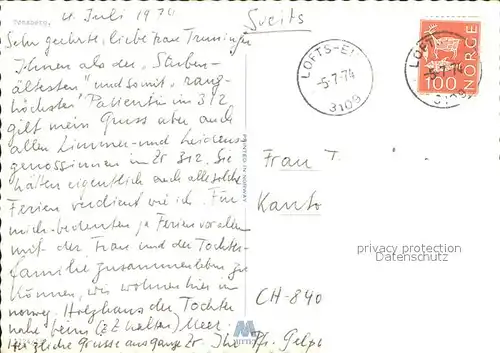 Tønsberg.
4. Juli 1974
Sveits
Sehr geehrte, liebe Frau
Ihnen als der „Stuben-
ältesten" und somit „rang-
höchsten" Patientin in 312
gilt mein Gruss aber auch
allen Zimmer- und Leidens-
genossinnen im Zr 312. Sie
hätten eigentlich auch alle solche
Ferien verdient wie ich. Für
mich bedeuten ja Ferien vor allem
mit der Frau und der Tochter-
familie zusammenleben zu
können, wir wohnen hier im
norweg. Holzhaus der Tochter
nahe beim (z Z kalten) Meer.
Herzliche Grüsse ans ganze Zr. Ihr Pfr. Gelpke
PRINTED IN NORWAY
LOFTS-EI
-5-7-74
3109
LOFTS
-5-7-74
NORGE
100
Frau T.
Kanto
CH-840
privacy protection
Datenschutz